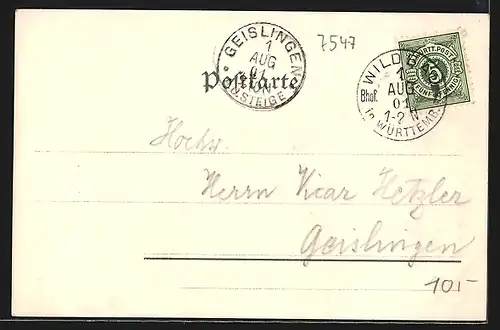 7547
GEISLINGEN
1
AUG
01
STEIGE
Postkarte
WILDBAD
1
AUG
01
1-2 N
Bhof.
in WÜRTTEMB.
K. WÜRTT. POST
5
FÜNF PFENNIG
Hochw.
Herrn Vicar Hetzler
Geislingen
10,-